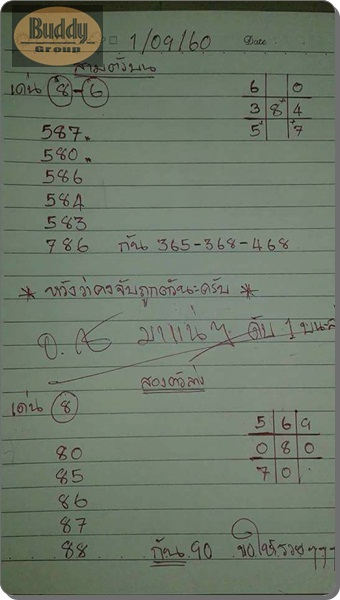 Buddy
Group
1/09/60 Date
สามตัวบน
เด่น 8-6
6 0
3 8 4
5 7
587
580
586
584
583
786 กัน 365-368-468
* หวังว่าคงจับถูกตัวนะครับ *
มาแน่ๆ ดับ 1 บน
สองตัวล่าง
เด่น 8
5 6 9
0 8 0
7 0
80
85
86
87
88 กัน 90 ขอให้รวยๆๆๆ